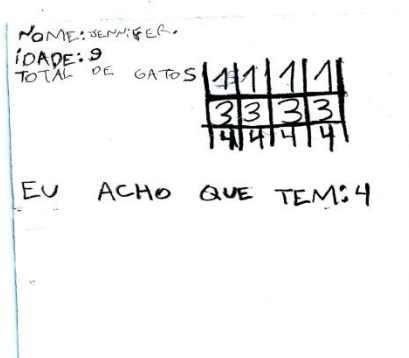 NOME: JENNIFER.
IDADE: 9
TOTAL DE GATOS 1 1 1 1
3 3 3 3
4 4 4 4
EU ACHO QUE TEM: 4